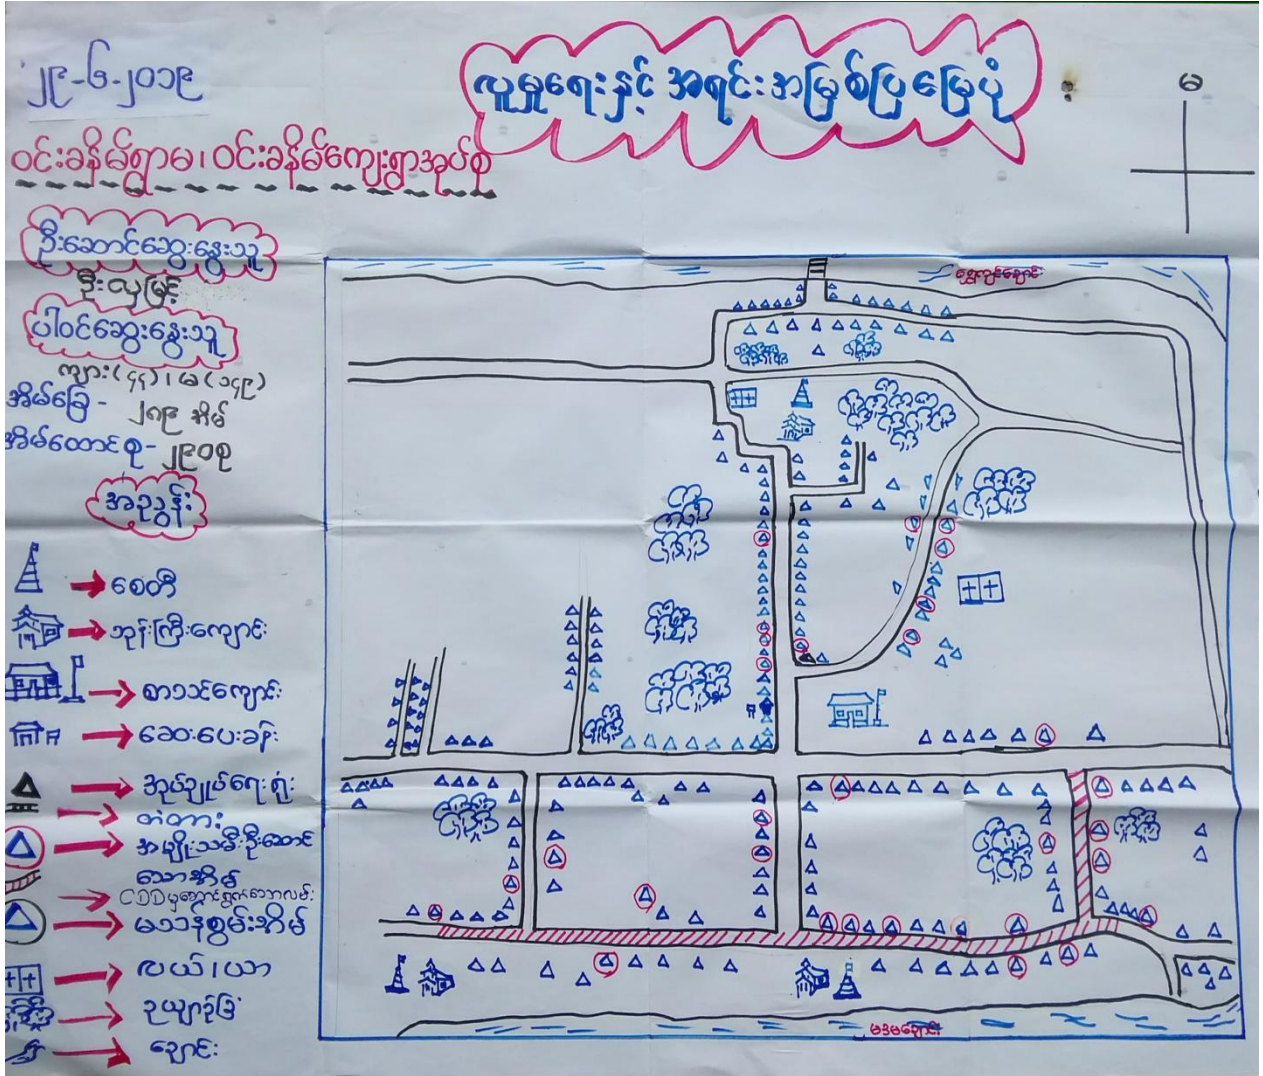 ၂၉-၆-၂၀၁၉
လူမှုရေးနှင့် အရင်းအမြစ်ပြမြေပုံ
မ
ဝင်းခနိမ်ရွာမ၊ ဝင်းခနိမ်ကျေးရွာအုပ်စု
ဦးဆောင်ဆွေးနွေးသူ
ဦးလှမြင့်
ပါဝင်ဆွေးနွေးသူ
ကျား(၄၄)၊ မ(၁၄၉)
အိမ်ခြေ - ၂၈၉ အိမ်
အိမ်ထောင်စု - ၂၉၀စု
အညွှန်း
စေတီ
ဘုန်းကြီးကျောင်း
စာသင်ကျောင်း
ဆေးပေးခန်း
အုပ်ချုပ်ရေးရုံး
တံတား
အမျိုးသမီးဦးဆောင်
သောအိမ်
CDDမှဆောင်ရွက်သောလမ်း
မသန်စွမ်းအိမ်
လယ်၊ယာ
ဥယျာဉ်ခြံ
ချောင်း
ရွှေကျင်ချောင်း
မဒမချောင်း